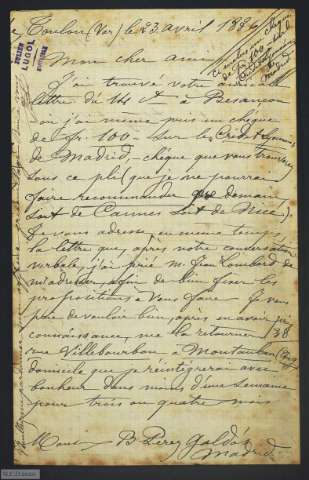 Toulon (Var) le 23 avril 1884
JULIEN
LUGOL
Mon cher ami
J'ai trouvé votre
lettre du 14 Ct à Besançon
où j'ai même pris un chèque
de fr. 100 — sur le Crédit Lyonnais
de Madrid, chèque que vous trouverez
sous ce pli (que je ne pourrai
faire recommander que demain
soit de Cannes soit de Nice).
Je vous adresse en même temps
la lettre que, après notre conversation
verbale, j'ai prié M. Jean Lombard de
m'adresser afin de bien fixer les
propositions à vous faire. Je vous
prie de vouloir bien, après en avoir pris
connaissance, me la retourner 38
rue Villebourbon à Montauban
domicile que je réintégrerai avec
bonheur dans moins d'une semaine
pour trois ou quatre mois
Mons B. Perez Galdós
Madrid